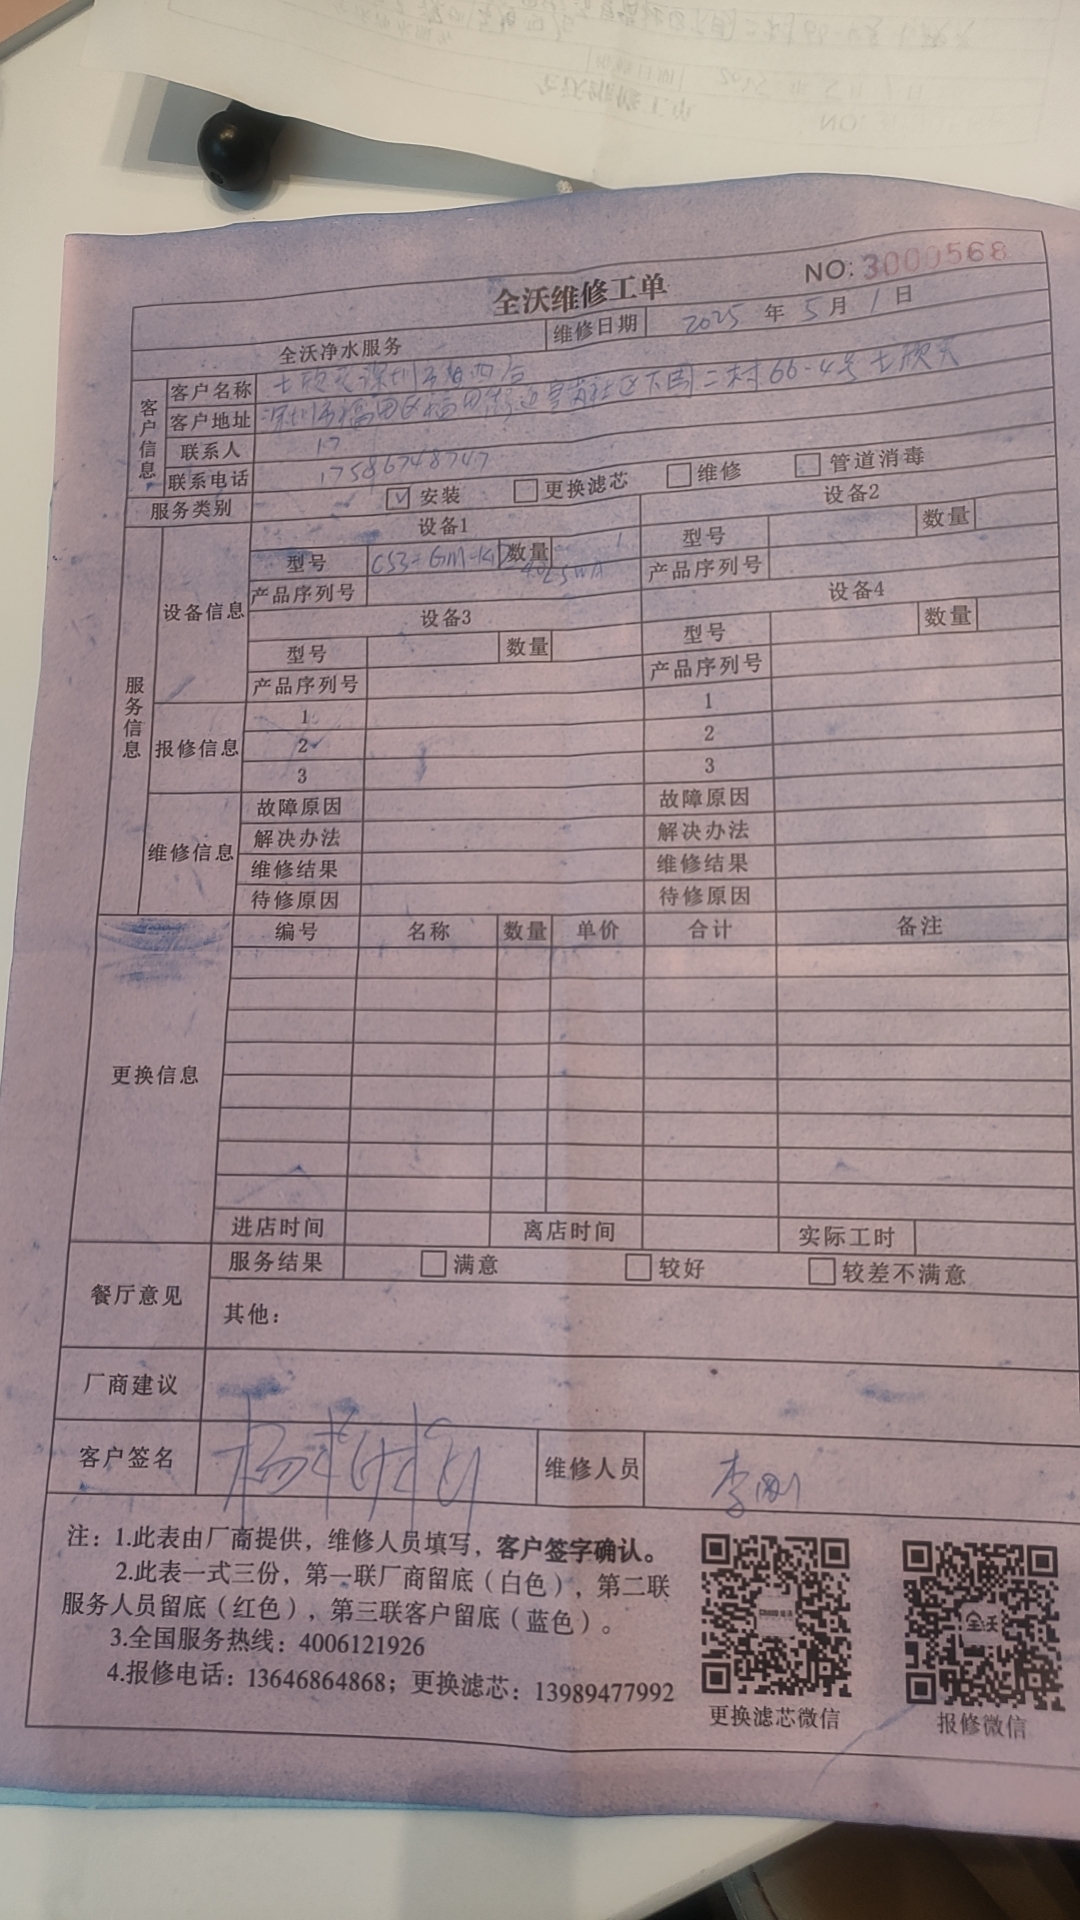 NO: 3000568
全沃维修工单
全沃净水服务 维修日期 2025 年 5 月 1 日
客户信息
客户名称
客户地址 深圳市福田区福田街道 社区下围二村66-4号
联系人
联系电话 17586748747
服务类别 ☑ 安装 □ 更换滤芯 □ 维修 □ 管道消毒
服务信息
设备信息
设备1 设备2
型号 数量 1 型号 数量
产品序列号 产品序列号
设备3 设备4
型号 数量 型号 数量
产品序列号 产品序列号
报修信息
1 1
2 2
3 3
维修信息
故障原因 故障原因
解决办法 解决办法
维修结果 维修结果
待修原因 待修原因
更换信息
编号 名称 数量 单价 合计 备注
进店时间 离店时间 实际工时
餐厅意见
服务结果 □ 满意 □ 较好 □ 较差不满意
其他：
厂商建议
客户签名 维修人员 李刚
注：1.此表由厂商提供，维修人员填写，客户签字确认。
2.此表一式三份，第一联厂商留底（白色），第二联
服务人员留底（红色），第三联客户留底（蓝色）。
3.全国服务热线：4006121926
4.报修电话：13646864868；更换滤芯：13989477992
全沃
更换滤芯微信 报修微信